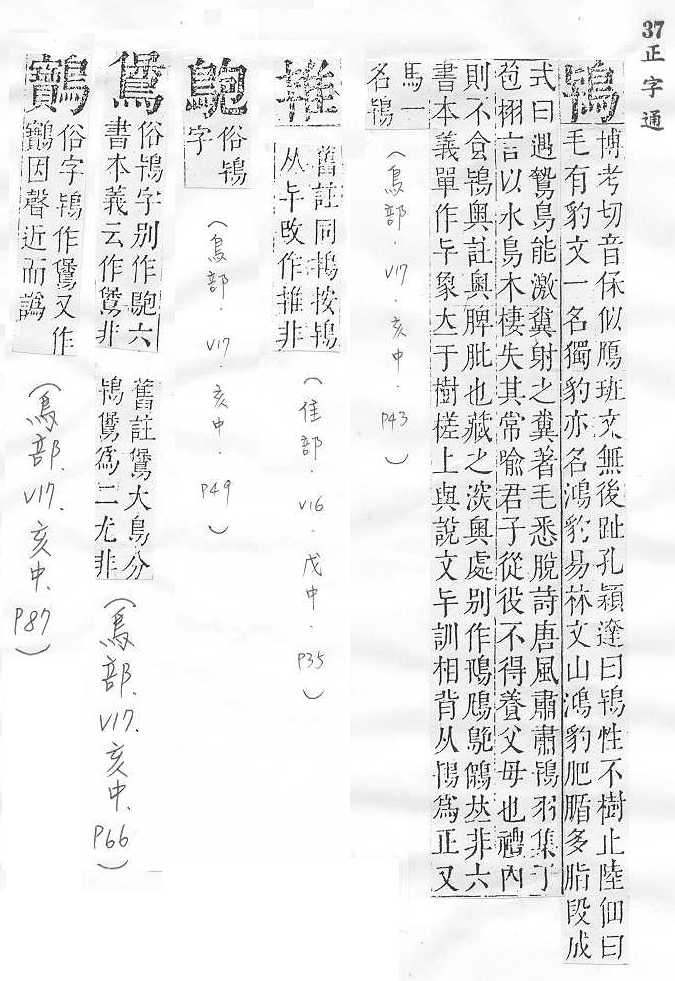 37正字通
鴇
博考切音保似鴈班文無後趾孔穎達曰鴇性不樹止陸佃曰
毛有豹文一名獨豹亦名鴻豹易林文山鴻豹肥腯多脂段成
式曰遇鷙鳥能激糞射之糞著毛悉脫詩唐風肅肅鴇羽集于
苞栩言以水鳥木棲失其常喻君子從役不得養父母也禮內
則不食鴇奧註奧脾胵也藏之深奧處别作非六
書本義單作象立于樹槎上與說文訓相背从鴇爲正又
馬一
名鴇
(鳥部.V17.亥中.P43)
舊註同鴇按鴇
从改作非
(隹部.V16.戌中.P35)
俗鴇
字
(鳥部.V17.亥中.P49)
俗鴇字别作六
書本義云作非
舊註大鳥分
鴇爲二尤非
(鳥部.V17.亥中.P66)
俗字鴇作又作
因聲近而譌
(鳥部.V17.亥中.P87)